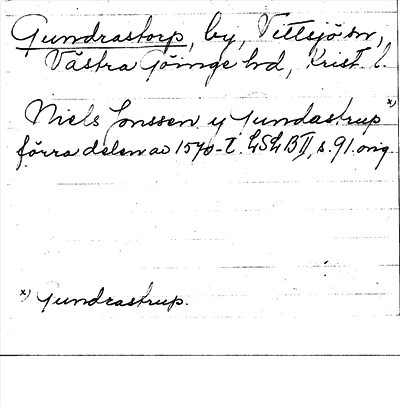 Gundrastorp, by, Vittsjö sn,
Västra Göinge hd, Krist. l.
Niels Jonssen y Gundastrup x)
förra delen av 1570-t. LSLB II, s. 91. orig.
x) Gundrastrup.